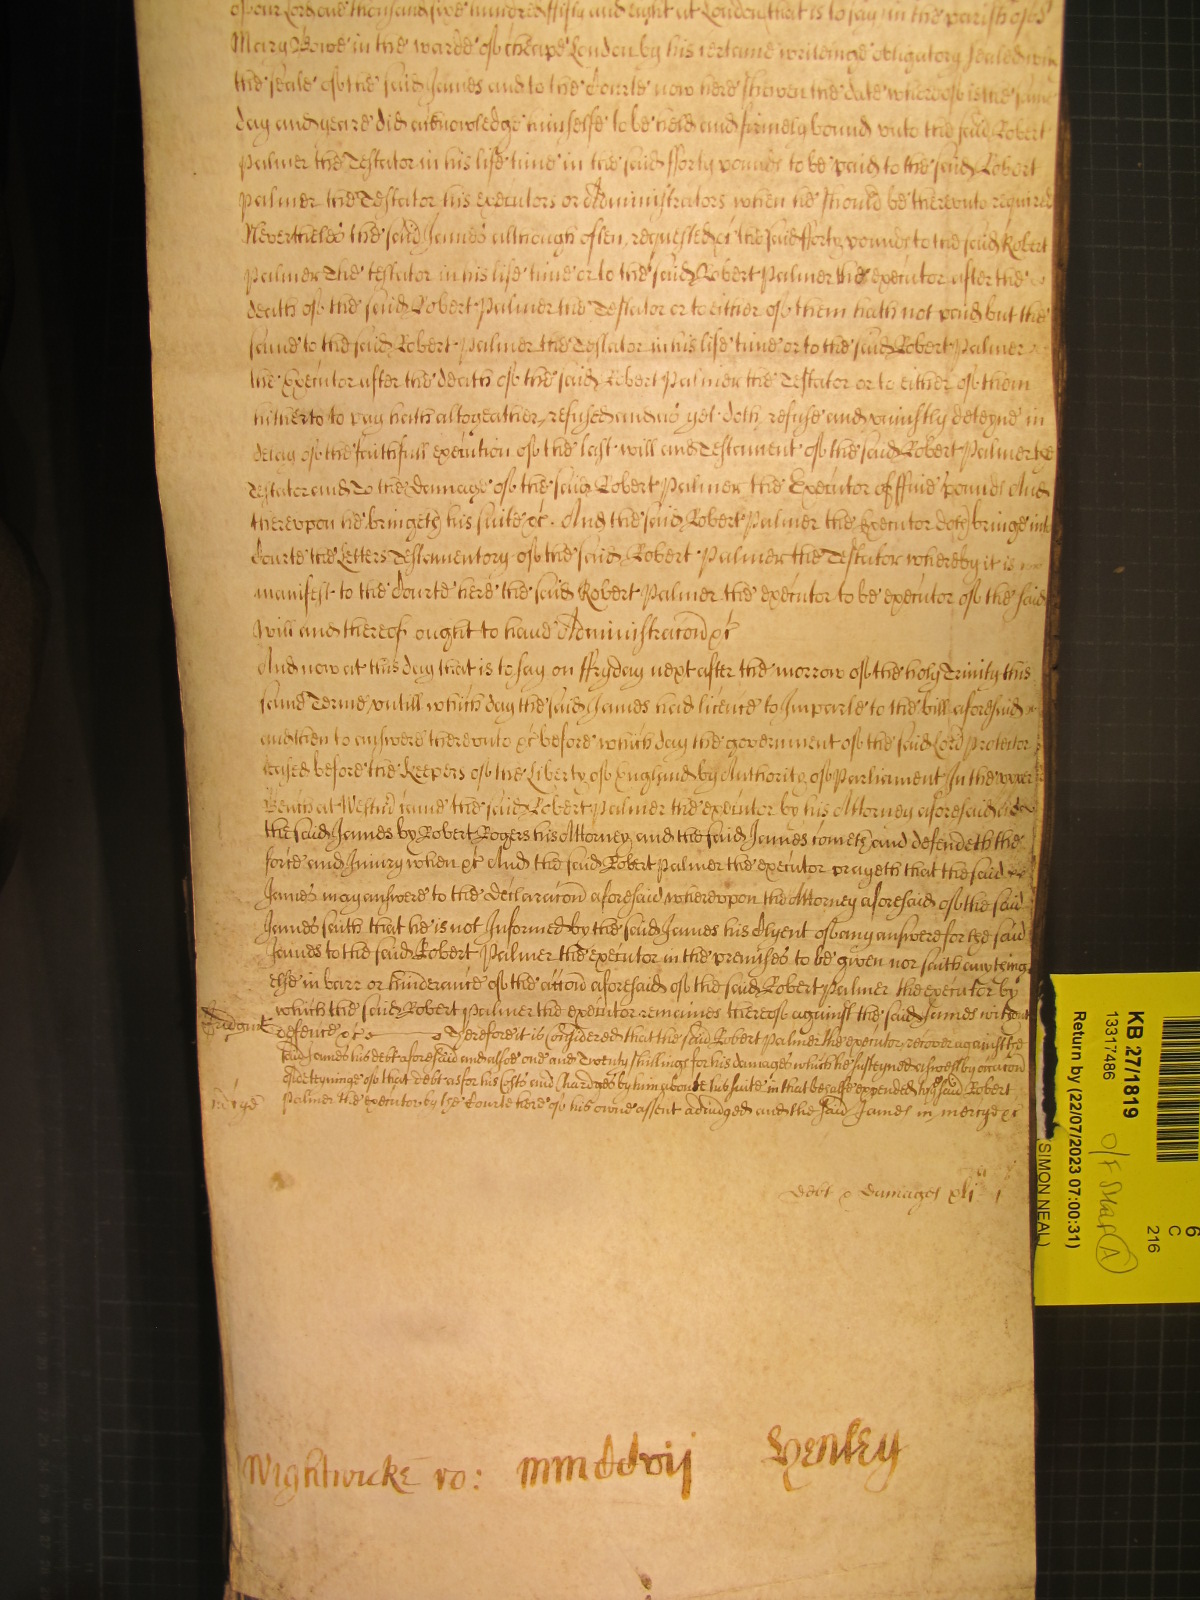 of our Lord one thousand six hundred fifty and eight at London that is to say in the parish of St
Mary Bowe in the warde of Cheape London by his certaine writeinge obligatory sealed with
the seale of the said James and to the Courte now here shewen the date whereof is the same
day and yeare did acknowledge himselfe to be held and firmely bound vnto the said Robert
Palmer the Testator in his life time in the said fforty pounds to be paid to the said Robert
Palmer the Testator his executors or Administrators when he should be therevnto required
Neverthelesse the said James although often requested &c the said fforty pounds to the said Robert
Palmer the testator in his life time or to the said Robert Palmer the executor after the
death of the said Robert Palmer the Testator or to either of them hath not paid but the
same to the said Robert Palmer the Testator in his life time or to the said Robert Palmer
the Executor after the death of the said Robert Palmer the Testator or to either of them
hitherto to pay hath altogeather refused and as yet doth refuse and vniustly deteyne in
delay of the faithfull execution of the last will and Testament of the said Robert Palmer the
Testator and To the damage of the said Robert Palmer the Executor of ffiue pounds And
therevpon he bringeth his suite &c. And the said Robert Palmer the Executor doth bringe into
Courte the Letters Testamentory of the said Robert Palmer the Testator whereby it is
manifest to the Courte here the said Robert Palmer the executor to be executor of the said
will and thereof ought to haue Administracon &c
And now at this day that is to say on ffryday next after the morrow of the holy Trinity this
same Terme vntill which day the said James had licence to Imparle to the bill aforesaid
and then to answere therevnto &c before which day the government of the said Lord Protector
ceased before the Keepers of the Liberty of England by Authority of Parliament In the vpper
Bench at Westm came the said Robert Palmer the executor by his Attorney aforesaid
the said James by Robert Rogers his Attorney and the said James cometh and defendeth the
force and Iniury when &c And the said Robert Palmer the executor prayeth that the said
James may answere to the declaracon aforesaid wherevpon the Attorney aforesaid of the said
James saith that he is not Informed by the said James his Clyent of any answere for the said
James to the said Robert Palmer the executor in the premises to be given nor saith anyteing
else in barr or hinderance of the accon aforesaid of the said Robert Palmer the executor by
which the said Robert Palmer the executor remaines thereof against the said James without
Judgmt defence &c Therefore it is considered that the said Robert Palmer the executor recover against the
said James his debt aforesaid and alsoe one and Twenty shillings for his damages which he susteyned aswell by occacon
of deteyninge of that debt as for his costs and Chardges by him about his suite in that behalfe expended to the said Robert
Palmer the executor by the Courte here of his owne assent adiudged and the said James in mercy &c
debt & damages xlj
Wightwicke ro: mmddvij Henley
KB 27/1819
13317486
Return by (22/07/2023 07:00:31)
(SIMON NEAL)
O/F Star A
6
C
216